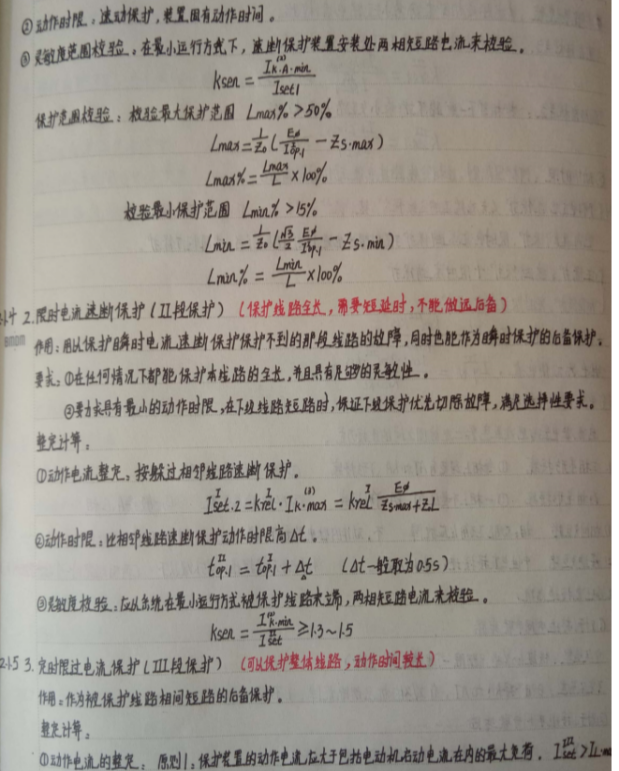 ②动作时限：速动保护，装置固有动作时间。
③灵敏度范围校验。在最小运行方式下，速断保护装置安装处两相短路电流来校验。
Ksen = I⁽²⁾k·A·min / Iset1
保护范围校验：校验最大保护范围 Lmax% > 50%
Lmax = 1/Z₀ ( Eφ / Iᴵop·1 − Zs·max )
Lmax% = Lmax / L × 100%
校验最小保护范围 Lmin% > 15%
Lmin = 1/Z₀ ( √3/2 Eφ / Iᴵop·1 − Zs·min )
Lmin% = Lmin / L × 100%
2. 限时电流速断保护（II段保护）（保护线路全长，需要短延时，不能做远后备）
作用：用以保护瞬时电流速断保护保护不到的那段线路的故障，同时也能作为瞬时保护的后备保护。
要求：①在任何情况下都能保护本线路的全长，并且具有足够的灵敏性。
②要力求具有最小的动作时限，在下级线路短路时，保证下级保护优先切除故障，满足选择性要求。
整定计算：
①动作电流整定。按躲过相邻线路速断保护。
Iᴵset·2 = Kᴵrel · I⁽³⁾k·max = Kᴵrel Eφ / (Zs·max + ZL)
②动作时限：比相邻线路速断保护动作时限高Δt。
tᴵᴵop·1 = tᴵop·1 + Δt （Δt一般取为0.5s）
③灵敏度校验：应从系统在最小运行方式被保护线路末端，两相短路电流来校验。
Ksen = Ik·min / Iset ≥ 1.3~1.5
3. 定时限过电流保护（III段保护）（可以保护整体线路，动作时间较长）
作用：作为被保护线路相间短路的后备保护。
整定计算：
①动作电流的整定： 原则1：保护装置的动作电流应大于包括电动机启动电流在内的最大负荷． Iᴵᴵᴵset > IL·